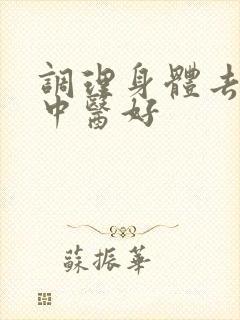 調理身體去
中醫好
蘇振華